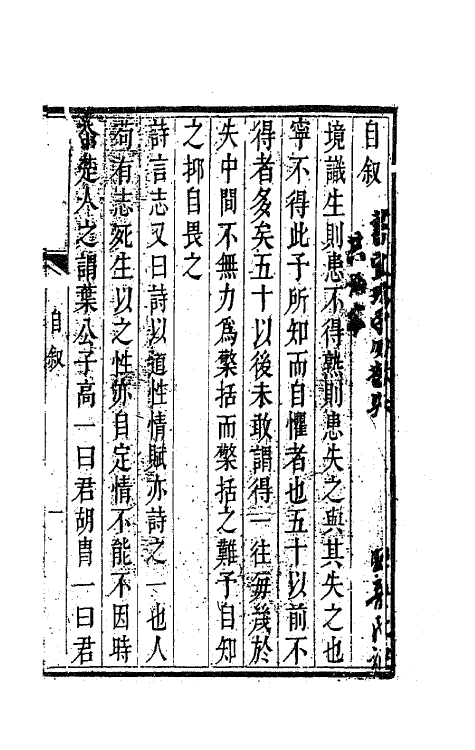 自叙
境識生則患不得熟則患失之與其失之也
寧不得此予所知而自懼者也五十以前不
得者多矣五十以後未敢謂得一往每幾於
失中間不無力為檃括而檃括之難予自知
之抑自畏之
詩言志又曰詩以道性情賦亦詩之一也人
苟有志死生以之性亦自定情不能不因時
爾楚人之謂葉公子高一曰君胡胄一曰君
自叙
一